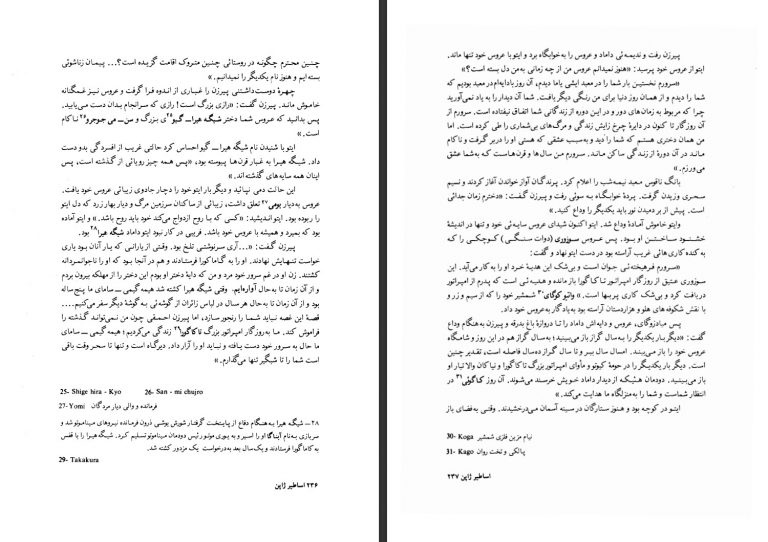 چنین محترم چگونه در روستائی چنین متروک اقامت گزیده است؟... پیمان زناشوئی
بسته ایم و هنوز نام یکدیگر را نمیدانیم. »
چهرهٔ دوست‌داشتنی پیرزن را غباری از اندوه فرا گرفت و عروس نیز غمگنانه
خاموش ماند. پیرزن گفت: «رازی بزرگ است! رازی که سرانجام بدان دست می‌یابید.
پس بدانید که عروس شما دختر شیگه هیراــ گیو۲۵ی بزرگ و سن‌ــ می جوجرو۲۶ ناکام
است. »
ایتو با شنیدن نام شیگه هیراــ گیو احساس کرد حالتی غریب از افسردگی بدو دست
داد. شیگه هیرا به غبار قرن‌ها پیوسته بود، «پس همه چیز رویائی از گذشته است، پس
اینان همه سایه‌های گذشته‌اند. »
این حالت دمی نپائید و دیگر بار ایتو خود را دچار جادوی زیبائی عروس خود یافت.
عروس به‌دیار یومی۲۷ تعلق داشت، زیبائی از ساکنان سرزمین مرگ و دیار بهار زرد که دل ایتو
را ربوده بود. ایتو اندیشید: «کسی که با روح ازدواج می‌کند خود باید روح باشد. » و ایتو آماده
بود که بمیرد و همیشه با عروس خود باشد. فریبی در کار نبود ایتو داماد شیگه هیرا۲۸ بود.
پیرزن گفت: «... آری سرنوشتی تلخ بود. وقتی از یارانی که یار آنان بود یاری
خواست تنهایش نهادند. او را به گاماکورا فرستادند و هم در آنجا بود که او را ناجوانمردانه
کشتند. زن او در غم سرور خود مرد و من که دایهٔ دختر او بودم این دختر را از مهلکه بیرون بردم
و از آن زمان تا به‌حال آواره‌ایم. وقتی شیگه هیرا کشته شد هیمه گیمی ــ سامای ما پنج‌ساله
بود و از آن زمان تا به‌حال هر سال در لباس زائران از گوشه‌ئی به گوشهٔ دیگر سفر می‌کنیم...
قصهٔ این غصه نباید شما را رنجور سازد، اما پیرزن احمقی چون من نمی‌تواند گذشته را
فراموش کند. ما به‌روزگار امپراتور بزرگ تاکاگورا۲۹ زندگی می‌کردیم؛ هیمه گیمی ــ سامای
ما حال به سرور خود دست یافته و نباید او را آزار داد. دیرگاه است و تنها تا سحر وقت باقی
است شما را تا شبگیر تنها می‌گذارم. »
25- Shige hira - Kyo 26- San - mi chujro
27- Yomi فرمانده و والی دیار مردگان
۲۸ــ شیگه هیرا به‌هنگام دفاع از پایتخت گرفتار شورش یوشی ذرون فرمانده نیروهای میناموتو شد و
سربازی به‌نام آیناگا او را اسیر و به یوری موتو رئیس دودمان میناموتو تسلیم کرد. شیگه هیرا را با قفس
به کاماکورا فرستادند و یک‌سال بعد به‌درخواست یک مزدور کشته شد.
29- Takakura
۲۳۶ اساطیر ژاپن
پیرزن رفت و ندیمه‌ئی داماد و عروس را به‌خوابگاه برد و ایتو با عروس خود تنها ماند.
ایتو از عروس خود پرسید: «هنوز نمیدانم عروس من از چه زمانی به‌من دل بسته است؟»
«سرورم نخستین بار شما را در معبد ایشی یاما دیدم، آن روز با دایه‌ام در معبد بودیم که
شما را دیدم و از همان روز دنیا برای من رنگی دیگر یافت. شما آن دیدار را به یاد نمی‌آورید
چرا که مربوط به زمان‌های دور و در این دوره از زندگانی شما اتفاق نیفتاده است. سرورم از
آن روزگار تا کنون در دایرهٔ چرخ زایش زندگی و مرگ‌های بی‌شماری را طی کرده است. اما
من همان دختری هستم که شما را دید و به‌سبب عشقی که هستی او را دربر گرفت و ناکام
ماند در آن دورهٔ از زندگی ساکن ماند. سرورم من سال‌ها و قرن‌هاست که به‌شما عشق
می‌ورزم. »
بانگ ناقوس معبد نیمه‌شب را اعلام کرد. پرندگان آواز خواندن آغاز کردند و نسیم
سحری وزیدن گرفت. پردهٔ خوابگاه به سوئی رفت و پیرزن گفت: «دخترم زمان جدائی
است. پیش از بر دمیدن نور باید یکدیگر را وداع کنید. »
وایتو خاموش آمادهٔ وداع شد. ایتو اکنون شیدای عروس سایه‌ئی خود و تنها در اندیشهٔ
خشنود ساختن او بود. پس عروس سوزوری (دوات سنگی) کوچکی را که
به کنده کاری‌هائی غریب آراسته بود در دست ایتو نهاد و گفت:
«سرورم فرهیخته‌ئی جوان است و بی‌شک این هدیهٔ خرد او را به کار می‌آید. این
سوزوری عتیق از روزگار امپراتور تاکاگورا بازمانده و هدیه‌ئی است که پدرم از امپراتور
دریافت کرد و بی‌شک کاری پربها است. » وایتو کوگای۳۰ شمشیر خود را که از سیم و زر و
با نقش شکوفه‌های هلو و هزاردستان آراسته بود به‌یادگار به‌عروس خود داد.
پس میادزوگای، عروس و دایه‌اش داماد را تا دروازهٔ باغ بدرقه و پیرزن به‌هنگام وداع
گفت: «دیگر بار یکدیگر را به‌سال گراز باز می‌بینید؛ به‌سال گراز هم در این روز و شامگاه
عروس خود را باز می‌بیند. امسال سال ببر و تا سال گراز ده‌سال فاصله است، تقدیر چنین
است. دیگر بار یکدیگر را در حومهٔ کیوتو و ماوای امپراتور بزرگ تاکاگورا و نیاکان والاتبار او
باز می‌بینید. دودمان هئیکه از دیدار داماد خویش خرسند می‌شوند. آن روز کاگوئی۳۱ در
انتظار شماست و شما را به‌منزلگاه ما هدایت می‌کند. »
ایتو در کوچه بود و هنوز ستارگان در سینه آسمان می‌درخشیدند. وقتی به‌فضای باز
30- Koga نیام مزین فلزی شمشیر
31- Kago پالکی و تخت روان
اساطیر ژاپن ۲۳۷